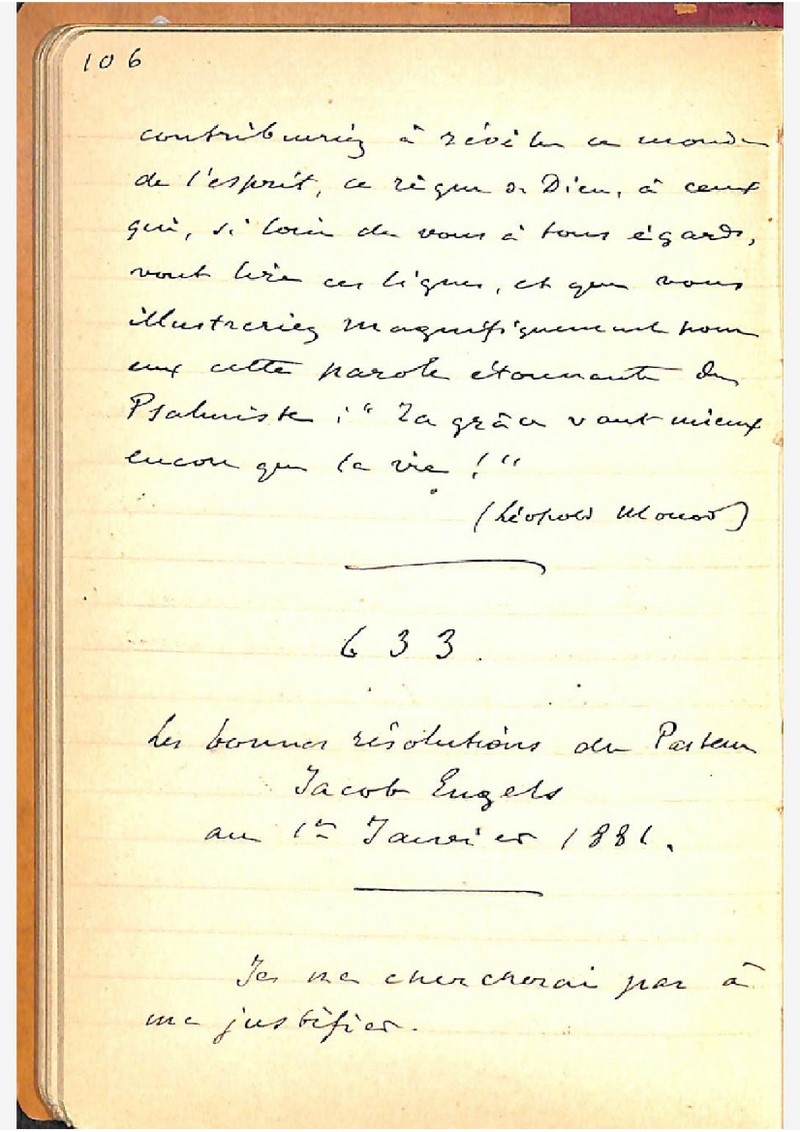 106
contribueriez à révéler ce monde
de l'esprit, ce règne de Dieu, à ceux
qui, si loin de vous à tous égards,
vont lire ces lignes, et que vous
illustreriez magnifiquement pour
eux cette parole étonnante du
Psalmiste : "Ta grâce vaut mieux
encore que la vie !"
(Léopold Monod)
633.
Les bonnes résolutions du Pasteur
Jacob Engels
au 1er Janvier 1881.
Je ne chercherai pas à
me justifier.